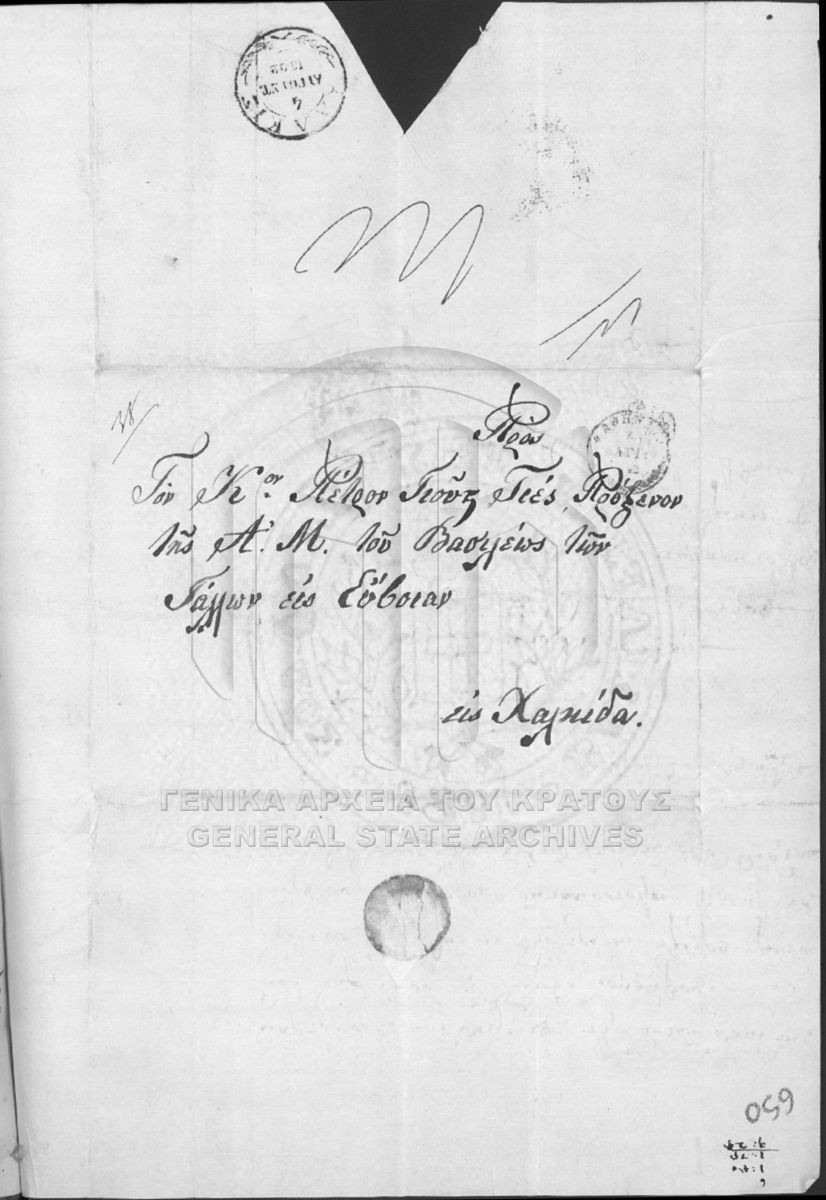 Πρὸς
Τὸν Κ.ον Πέτρον Γιοὺζ Γιές, Πρόξενον
τῆς Α. Μ. τοῦ Βασιλέως τῶν
Γάλλων εἰς Εὔβοιαν
εἰς Χαλκίδα.
ΓΕΝΙΚΑ ΑΡΧΕΙΑ ΤΟΥ ΚΡΑΤΟΥΣ
GENERAL STATE ARCHIVES
650